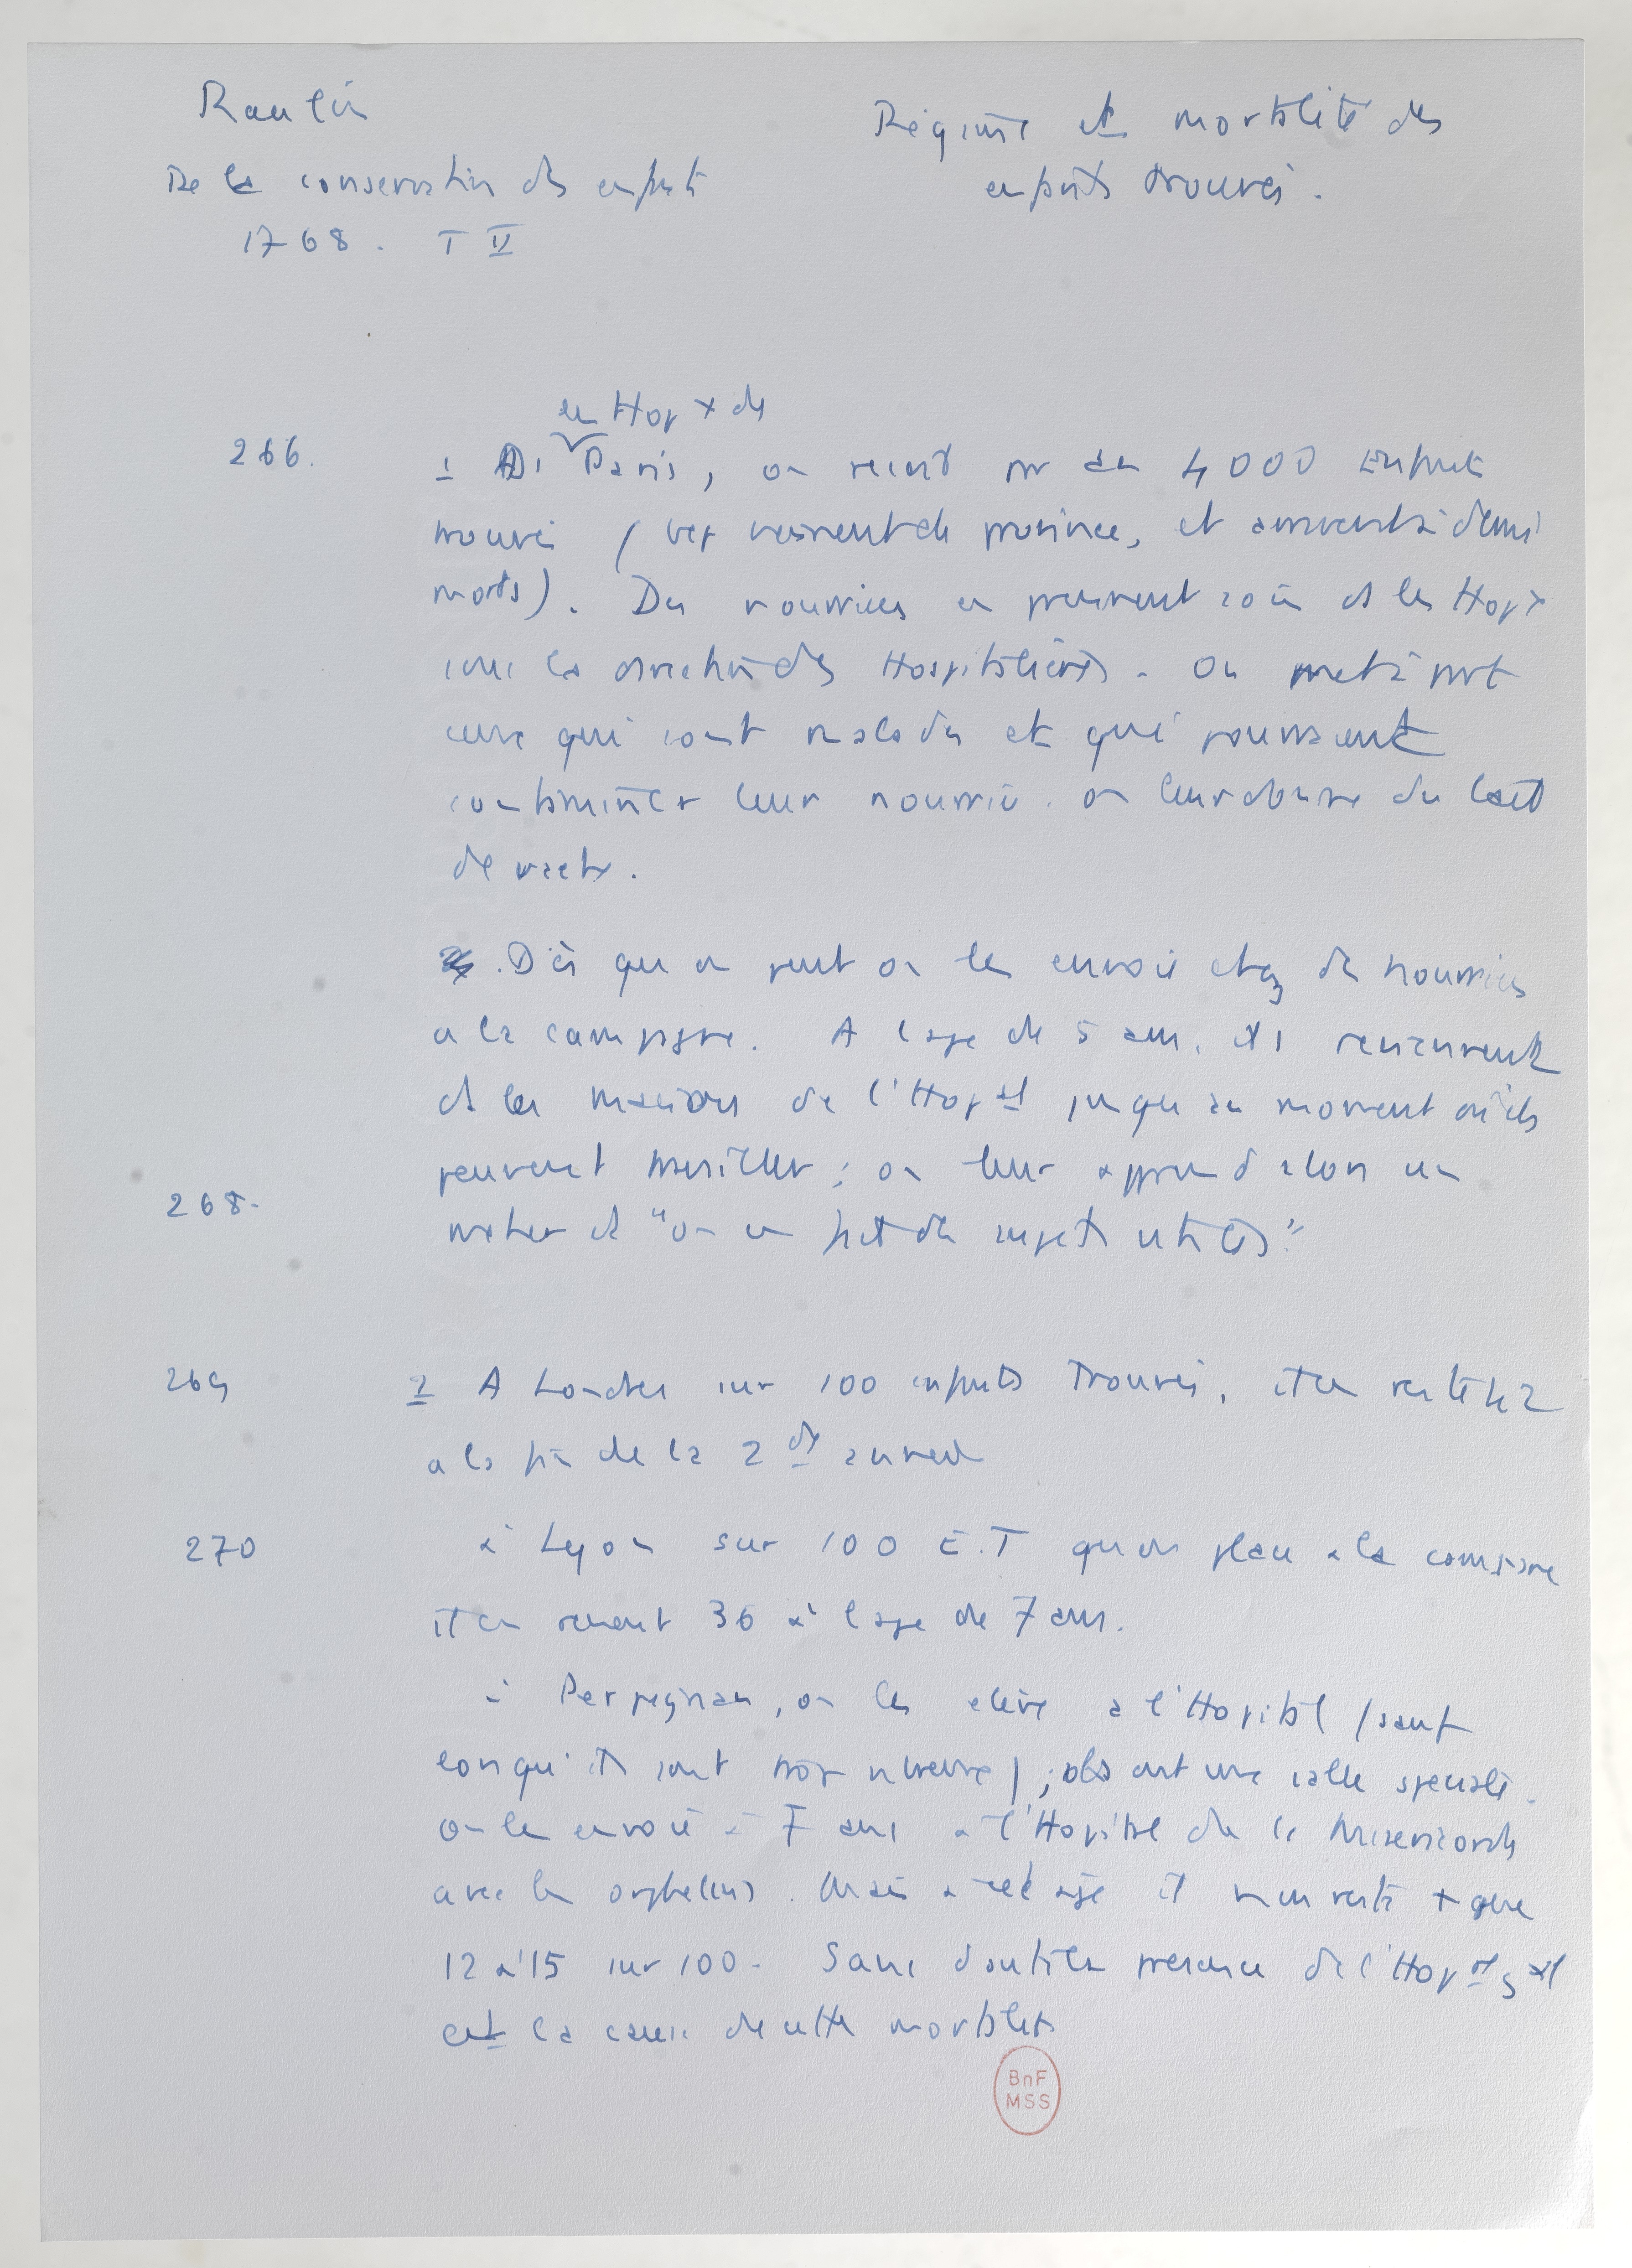 Raulin
De la conservation des enfants
1768. T II
Régime et mortalité des
enfants trouvés.
les Hopx de
266.
1 Ds Paris, on reçoit par an 4000 Enfants
trouvés (bcp viennent de province, et arrivent à demi
morts). Des nourrices en prennent soin ds les Hopx
sous la direction des Hospitalières. On met à part
ceux qui sont malades et qui pourraient
contaminer leur nourrice. on leur donne du lait
de vache.
Dès qu on peut on les envoie chez des nourrices
a la campagne. A l age de 5 ans, ils reviennent
ds les maisons de l'Hopal jusqu au moment où ils
peuvent travailler ; on leur apprend alors un
268.
métier et "on en fait des sujets utiles"
269
2 A Londres sur 100 enfants trouvés, il en reste
a la fin de la 2de année
270
à Lyon sur 100 E.T qu on place a la campagne
il en revient 36 à l age de 7 ans.
à Perpignan, on les élève a l'Hopital (sauf
lorsqu'ils sont trop nbreux) ; ils ont une salle speciale.
on les envoie à 7 ans a l'Hopital de la Misericorde
avec les orphelins. Mais a cet age il n en reste + que
12 à 15 sur 100. Sans doute la présence de l'Hopal gal
est la cause de cette mortalité
BnF
MSS